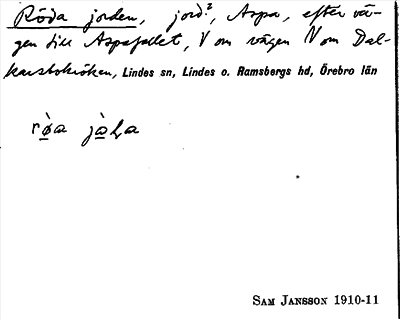 Röda jorden, jord?, Aspa, efter vä-
gen till Aspafallet, V om vägen N om Dal-
karstokröken, Lindes sn, Lindes o. Ramsbergs hd, Örebro län
SAM JANSSON 1910-11